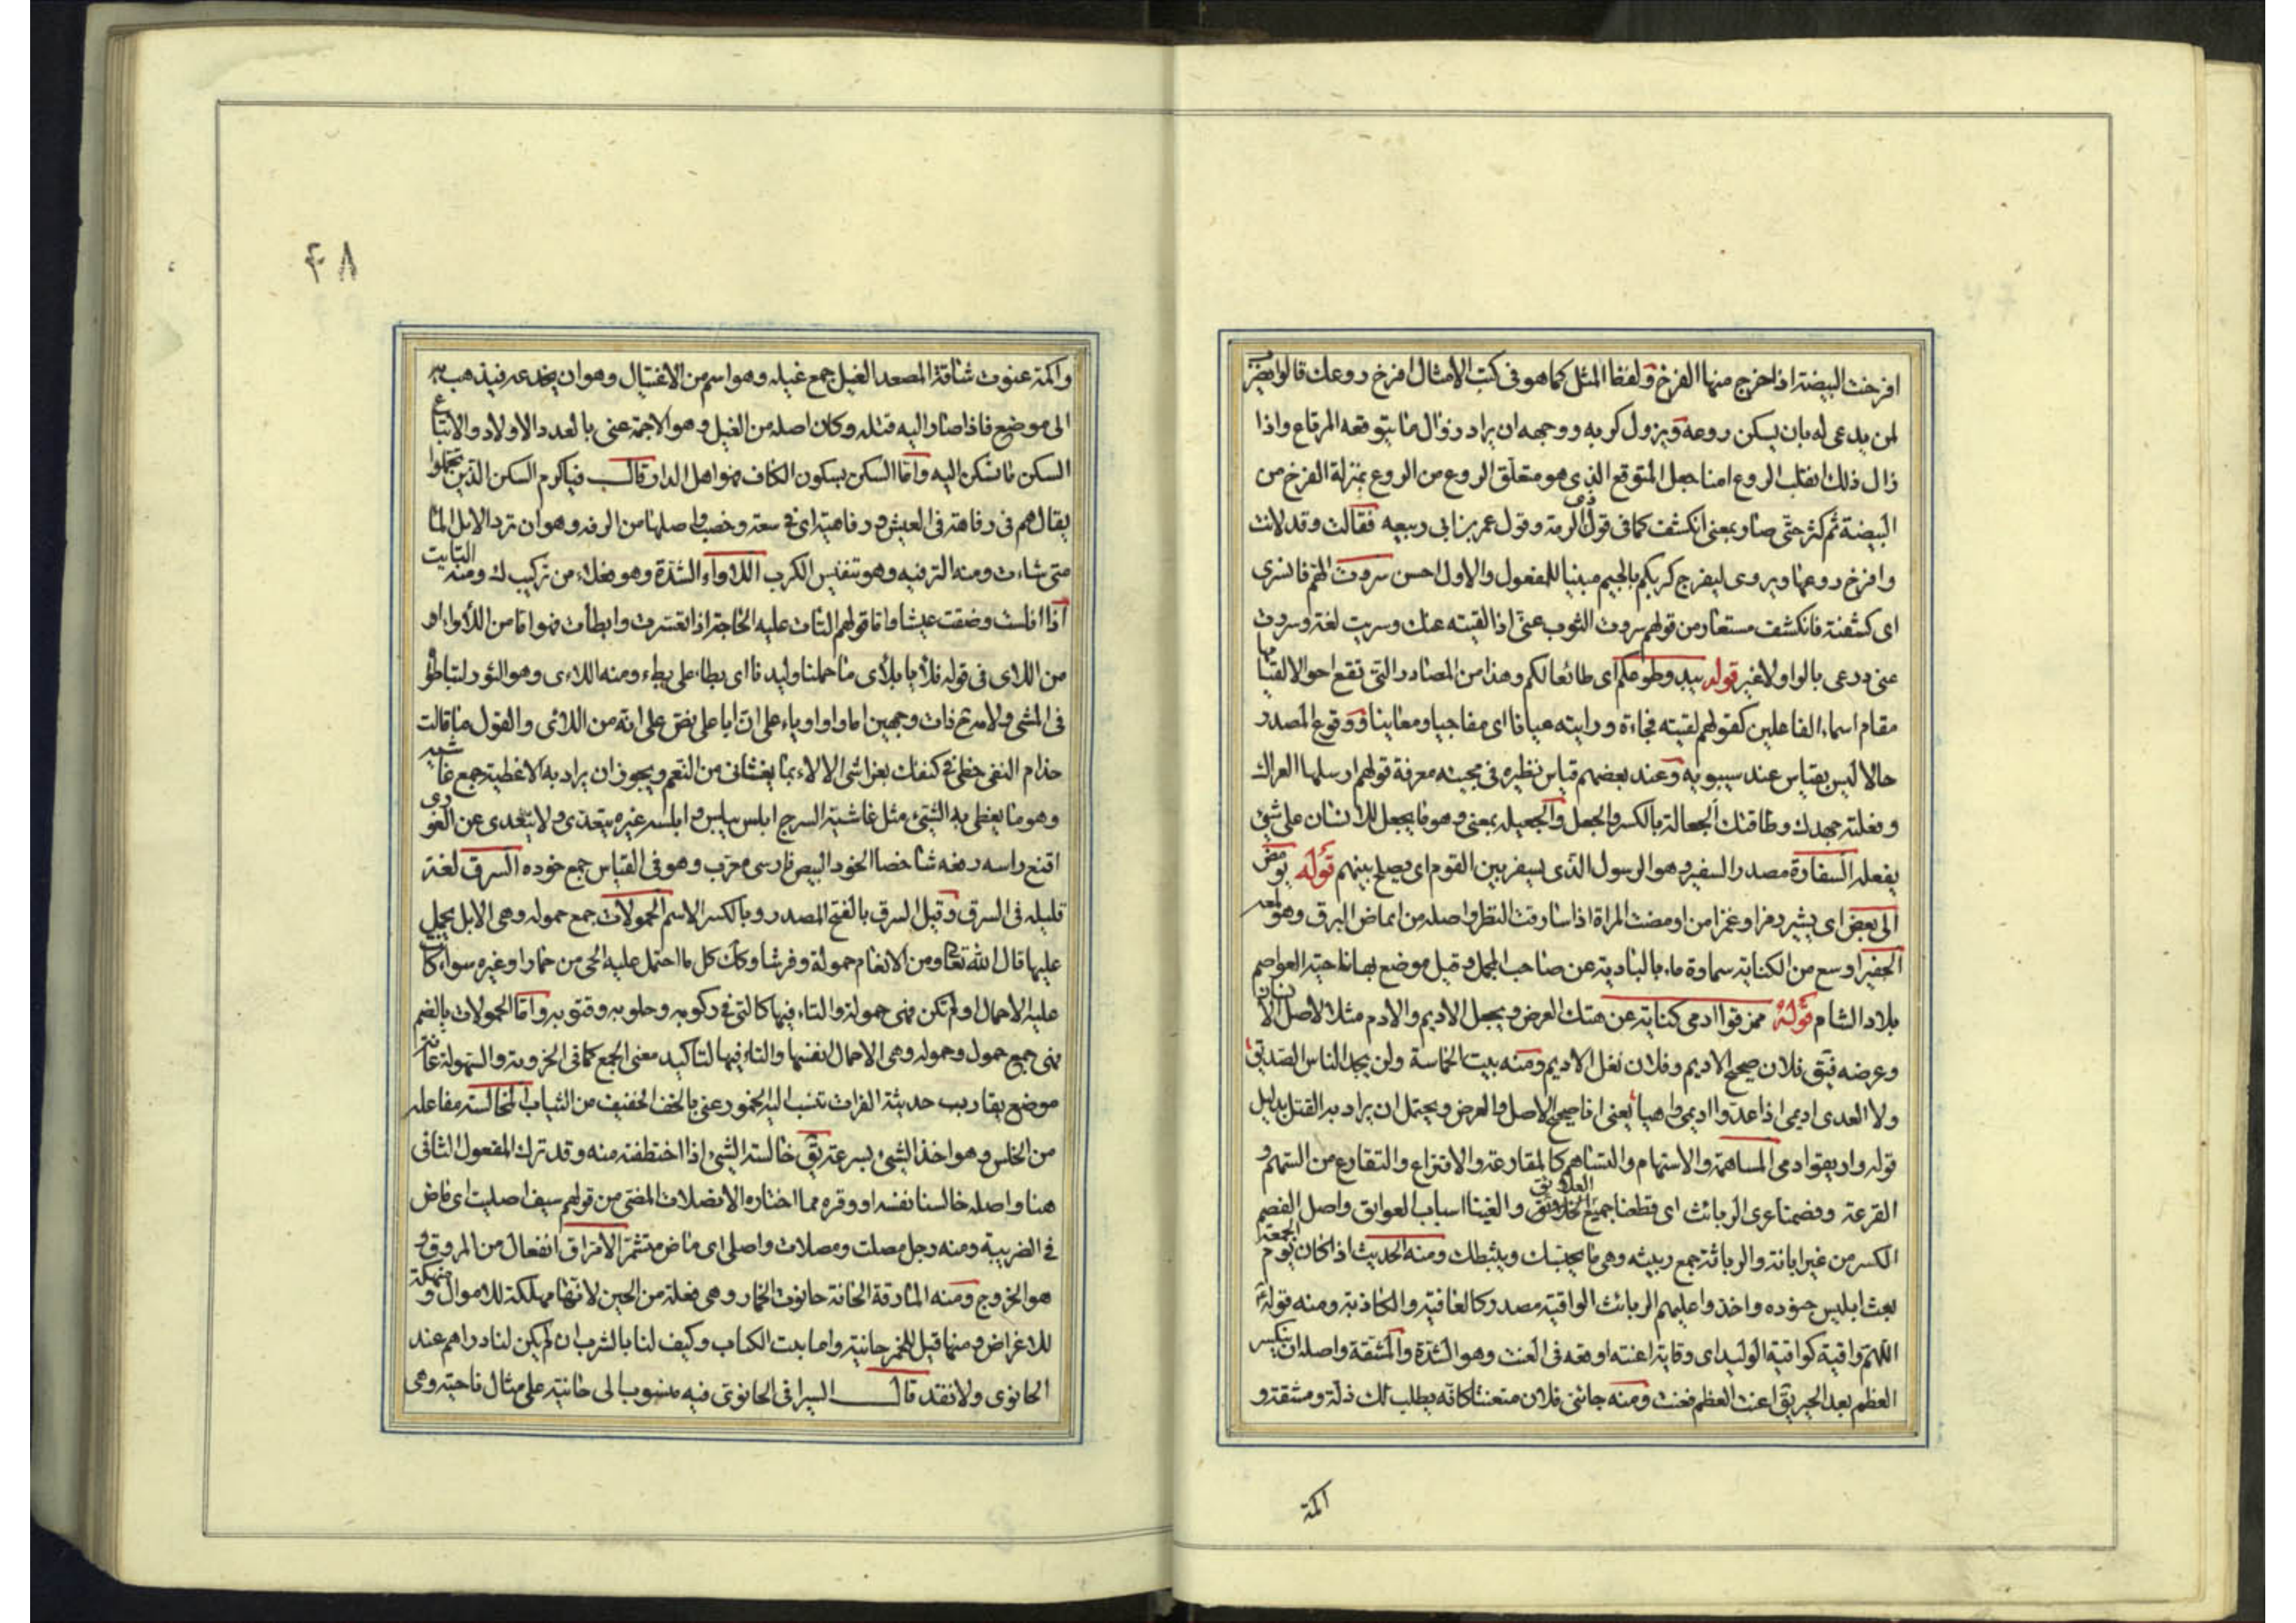 افرخت البيضة اذا خرج منها الفرخ ولفظ المثل كما هو فى كتب الامثال افرخ روعك قالوا يضرب
لمن يدعى له بان يسكن روعه ويزول كربه ووجهه ان يراد زوال ما يتوقعه المرتاع واذا
زال ذلك انقلب الروع امنا جعل المتوقع الذى هو متعلق الروع من الروع بمنزلة الفرخ من
البيضة ثم كثر حتى صار بمعنى انكشف كما فى قول ذى الرمة وقول عمر بن ابى ربيعه فقالت وقد لانت
وافرخ روعها ويروى ليفرج كربكم بالجيم مبنيا للمفعول والاول احسن سروت الهم فانسرى
اى كشفته فانكشف مستعار من قولهم سروت الثوب عنى اذا القيته عنك وسريت لغة وسروت
عنى درعى بالواو لا غير قوله بيد وطوعكم اى طائعا لكم وهذا من المصادر التى تقع احوالا لقيامها
مقام اسماء الفاعلين كقولهم لقيته فجاءة ورايته عيانا اى مفاجيا ومعاينا ووقوع المصدر
حالا ليس بقياس عند سيبويه وعند بعضهم قياس نظيره فى مجيئه معرفة قولهم ارسلها العراك
وفعلته جهدك وطاقتك الجعالة بالكسر والجعل والجعيله بمعنى وهو ما يجعل للانسان على شئ
يفعله السفارة مصدر السفير وهو الرسول الذى يسفر بين القوم اى يصلح بينهم قوله يومض
الى بعض اى يشير رمزا وغمزا من اومضت المراة اذا سارقت النظر واصله من ايماض البرق وهو لمعه
الجفير اوسع من الكنانة سماوة ماء بالبادية عن صاحب المجمل وقيل موضع بها ناحية العواصم
بلاد الشام قوله مزقوا ادمى كناية عن هتك العرض ويجعل الاديم والادم مثلا لاصل الانسان
وعرضه فيق فلان صحيح الاديم وفلان نغل الاديم ومنه بيت الحماسة ولن يجد الناس الصديق
ولا العدى اديمى اذا عدوا اديمى واهيا يعنى انا صحيح الاصل والعرض ويحتمل ان يراد به القتل بدليل
قوله واريقوا دمى المساهمة والاستهام والتساهم كالمقارعة والاقتراع والتقارع من السهم و
القرعة وفصمنا عرى الربائث اى قطعنا جميع العلائق والغينا اسباب العوايق واصل الفصم
الكسر من غير ابانة والرباثة جمع ربيثه وهى ما يحبسك ويثبطك ومنه الحديث اذا كان يوم الجمعة
بعث ابليس جنوده واخذوا عليهم الربائث الواقية مصدر كالعافية والكاذبة ومنه قوله
اللهم واقية كواقية الوليد اى وقاية اعنته اوقعه فى العنت وهو الشدة والمشقة واصله ان ينكسر
العظم بعد الجبر يق اعنت العظم فعنت ومنه جائنى فلان متعنتا كانه يطلب لك ذلة ومشقة و
اكمة
۴۸
واكمة عنوت شاقة المصعد الغيل جمع غيله وهو اسم من الاغتيال وهو ان يخدعه فيذهب به
الى موضع فاذا صار اليه قتله وكان اصله من الغيل وهو الاجمة عنى بالعدد الاولاد والاتباع
السكن ما تسكن اليه واما السكن بسكون الكاف فهو اهل الدار قال فياكرم السكن الذين تحملوا
يقال هم فى رفاهة فى العيش ورفاهية اى فى سعة وخصب واصلها من الرفه وهو ان ترد الابل الماء
متى شاءت ومنه الترفيه وهو تنفيس الكرب اللاواء الشدة وهو فعلاء من تركيب لك ومنه التايت
اذا افلست وضقت عيشا واما قولهم التاث عليه الحاجة اذا تعسرت وابطات فهو اما من اللأواء او
من اللاى فى قوله فلأيا بلأى ما حملنا وليدنا اى بطاء على بطء ومنه اللاءى وهو الثور لتباطؤه
فى المشى ولامه ذات وجهين اما واو او ياء على ان ابا على نص على انه من اللائى والقول ما قالت
حذام النفى حظى فى كنفك بغواشى الالاء بما يغشانى من النعم ويجوز ان يراد به الاغطية جمع غاشيه
وهو ما يغطى به الشئ مثل غاشية السرج ابلس يبلس وابلسه غيره يتعدى ولا يتعدى عن الغورى
اقنع راسه رفعه شاخصا الخود البيض فارسى معرب وهو فى القياس جمع خوده السرق لغة
قليله فى السرق وقيل السرق بالفتح المصدر وبالكسر الاسم الحمولات جمع حموله وهى الابل يحمل
عليها قال الله تعالى ومن الانعام حمولة وفرشا وكك كل ما احتمل عليه الحى من حمار او غيره سواء كانت
عليه الاحمال او لم تكن فهى حمولة والتاء فيها كالتى فى ركوبه وحلوبه وقتوبه واما الحمولات بالضم
فهى جمع حمول وحموله وهى الاحمال نفسها والتاء فيها لتاكيد معنى الجمع كما فى الخزونة والسهولة عانة
موضع بقارب حديثة الفرات تنسب اليه الخمور عنى بالخف الخفيف من الثياب المخالسة مفاعله
من الخلس وهو اخذ الشئ بسرعة يق خالسته الشئ اذا اختطفته منه وقد ترك المفعول الثانى
هنا واصله خالسنا نفسه او وقره مما اختاره الانصلات المضى من قولهم سيف اصليت اى ماض
فى الضريبة ومنه رجل مصلت ومصلات واصلى اى ماض متشمر الامتراق انفعال من المروق و
هو الخروج ومنه المارقة الحانة حانوت الخمار وهى فعلة من الحين لانها مهلكة للاموال ومنهكة
للاغراض ومنها قيل للخمر حانية واما بيت الكتاب وكيف لنا بالشرب ان لم يكن لنا دراهم عند
الحانوى ولا نقد قال السيرافى الحانوى فيه منسوب الى حانية على مثال ناحية وهى